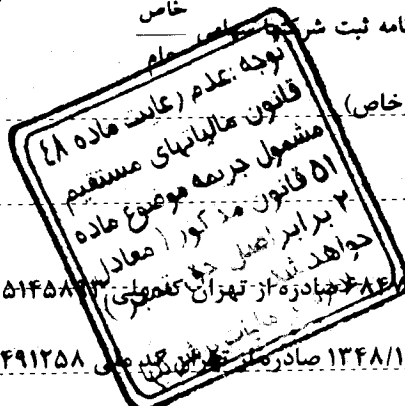 خاص
نامه ثبت شرکتها سهامی عام
خاص)
توجه: عدم رعایت ماده ۴۸
قانون مالیاتهای مستقیم
مشمول جریمه موضوع ماده
۵۱ قانون مذکور (معادل
۲ برابر اصل حق تمبر)
خواهد شد
۴۸۴۷ صادره از تهران کدملی ۵۱۴۵۸۹۳
۱۳۴۸/۱ صادره از تهران کد ملی ۴۹۱۲۵۸